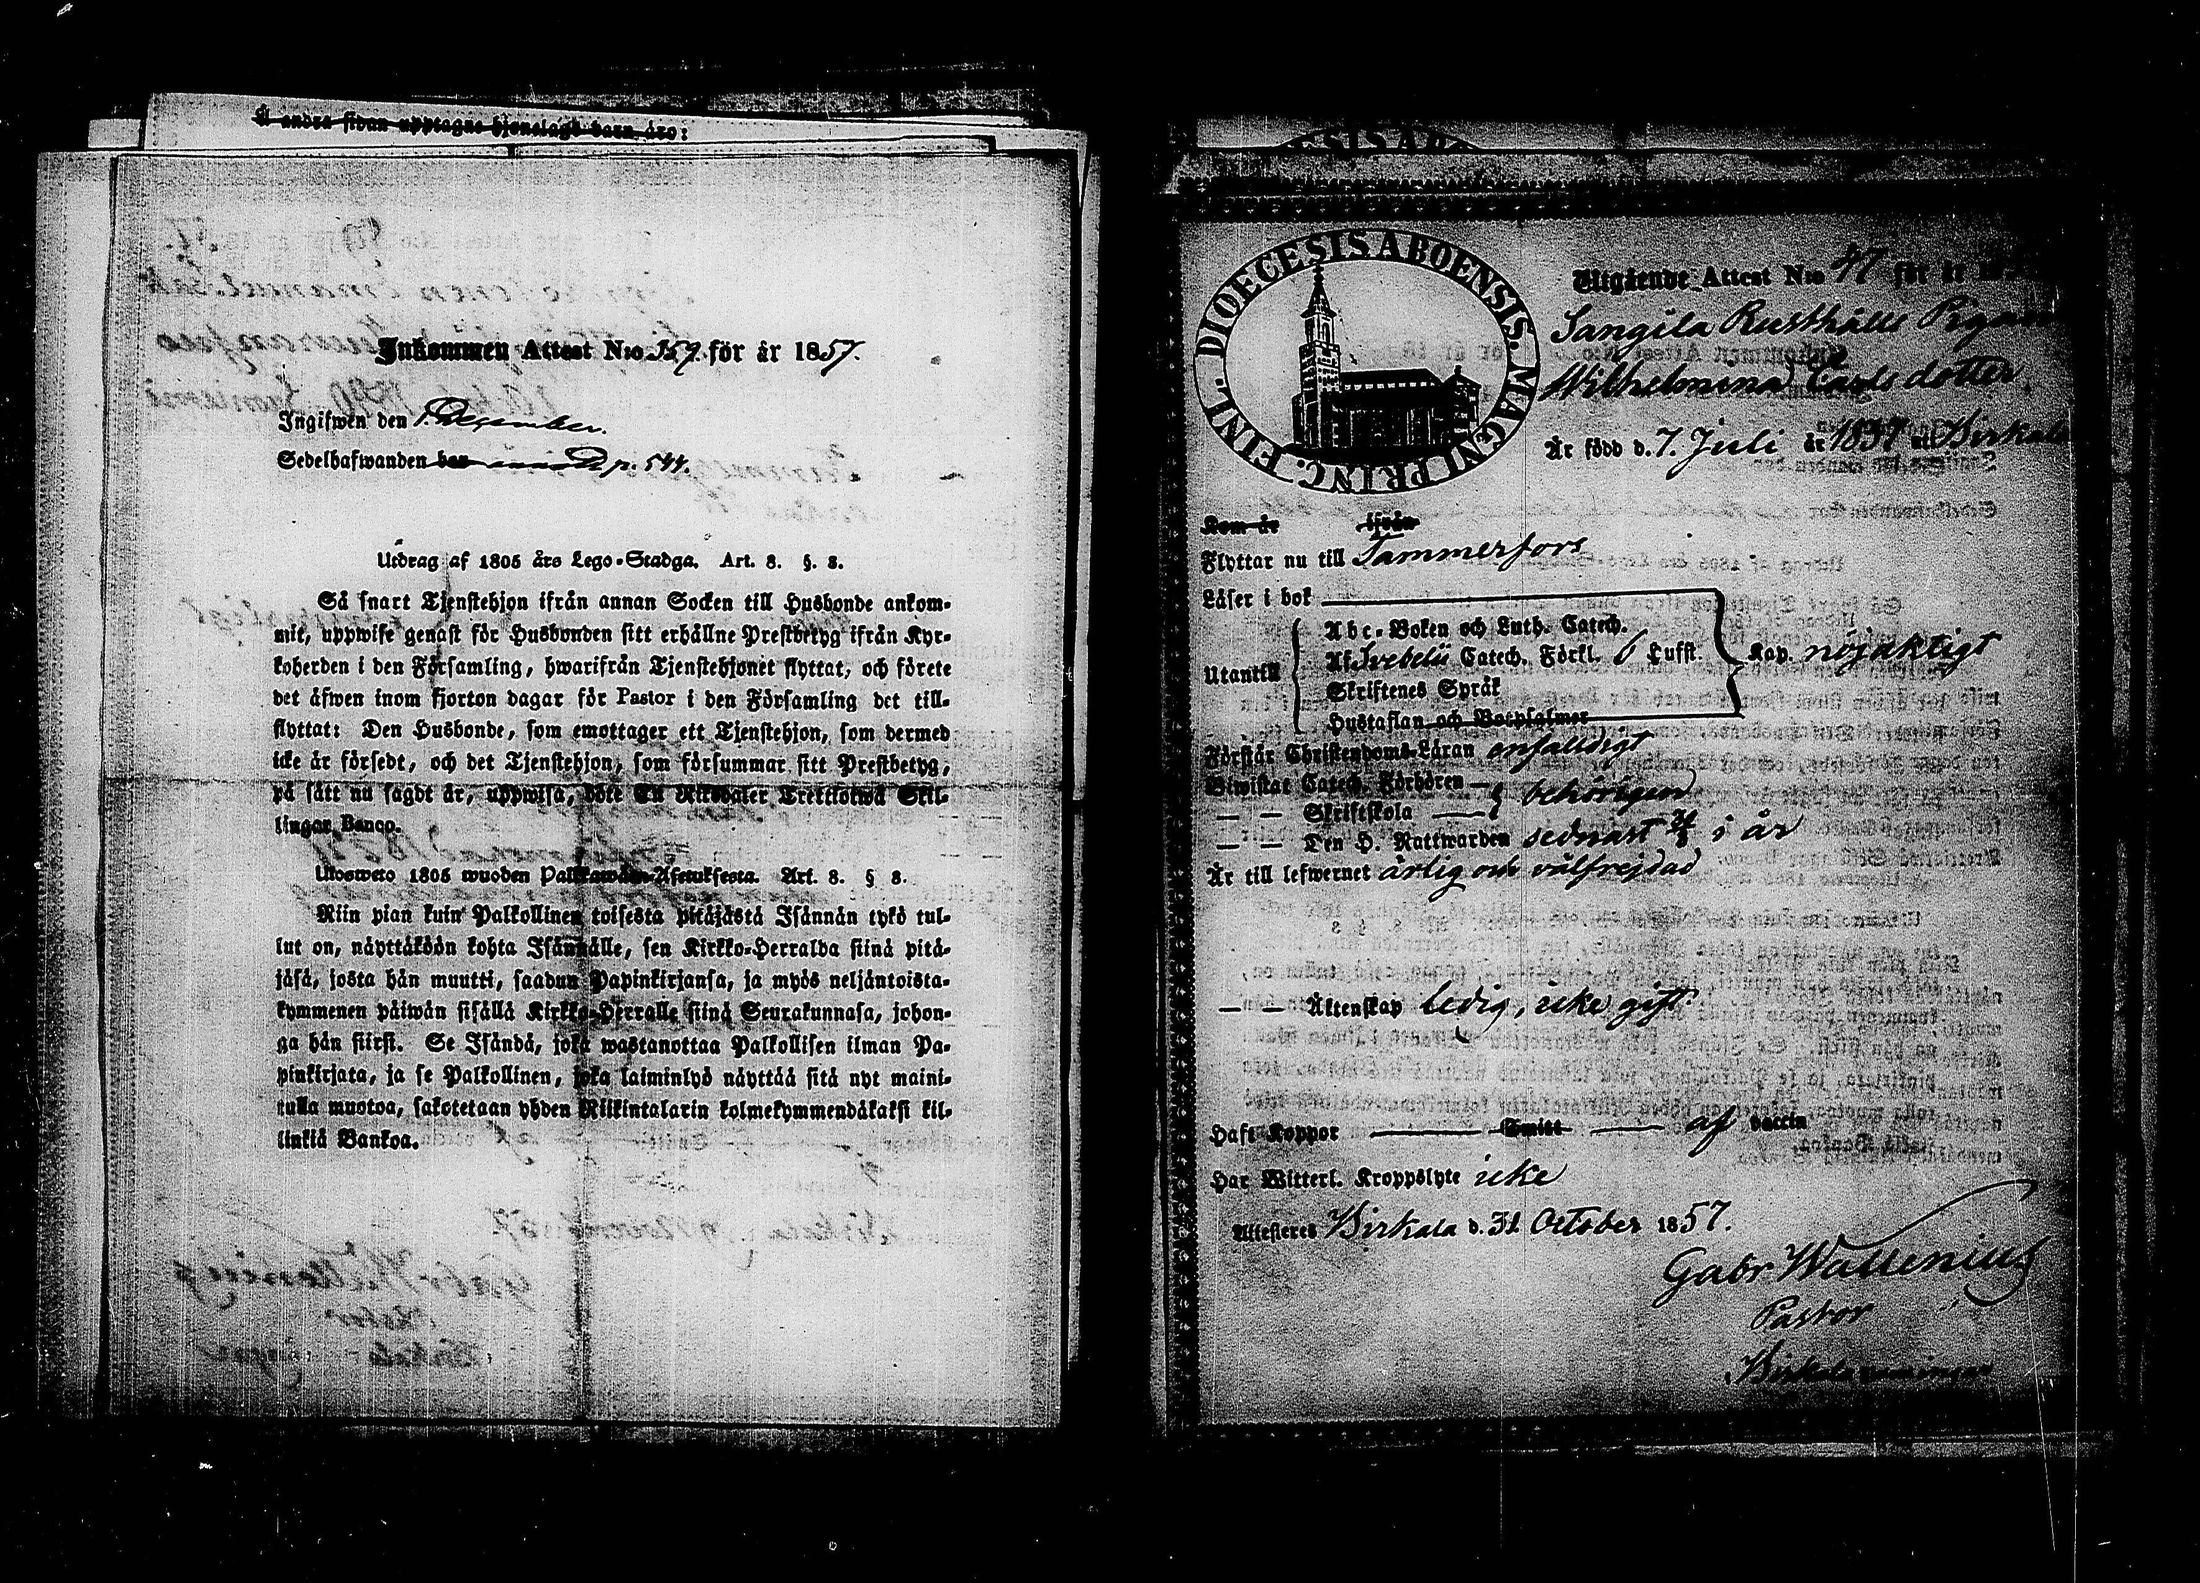 Å andra sidan upptagne hjonelags barn äro:
Inkommen Attest N:ro 357 för år 1857.
Ingifwen den 1. December.
Sedelhafwanden p. 544.
Utdrag af 1805 års Lego-Stadga. Art. 8. §. 8.
Så snart Tjenstehjon ifrån annan Socken till Husbonde ankom-
mit, uppwise genast för Husbonden sitt erhållne Prestbetyg ifrån Kyr-
koherden i den Församling, hwarifrån Tjenstehjonet flyttat, och förete
det äfwen inom fjorton dagar för Pastor i den Församling det till-
flyttat: Den Husbonde, som emottager ett Tjenstehjon, som dermed
icke är försedt, och det Tjenstehjon, som försummar sitt Prestbetyg,
på sätt nu sagdt är, uppwisa, böte En Riksdaler Trettiotwå Skil-
lingar Banco.
Ulosweto 1805 wuoden Palkawäen-Asetuksesta. Art. 8. § 8.
Niin pian kuin Palkollinen toisesta pitäjästä Isännän tykö tul-
lut on, näyttäköön kohta Isännälle, sen Kirkko-Herralda siinä pitä-
jäsä, josta hän muutti, saadun Papinkirjansa, ja myös neljäntoista-
kymmenen päiwän sisällä Kirkko-Herralle siinä Seurakunnasa, johon-
ga hän siirsi. Se Isändä, joka wastanottaa Palkollisen ilman Pa-
pinkirjata, ja se Palkollinen, joka laiminlyö näyttää sitä nyt maini-
tulla muotoa, sakotetaan yhden Riikintalarin kolmekymmendäkaksi kil-
linkiä Bankoa.
ESIS ABO
DIOECESIS ABOENSIS. MAGNI PRINC. FINL.
Utgående Attest N:ro 47 för år
Sangila Rusthålls Pigan
Wilhelmina Carlsdotter
Är född d. 7. Juli år 1837 uti Birkala
Kom år ifrån
Flyttar nu till Tammerfors
Läser i bok
Utantill
Abc-Boken och Luth. Catech.
Af Svebelii Catech. Förkl. 6 Lufst.
Skriftenes Språk
Hustaflan och Botpsalmer
Kap. nöjaktigt
Förstår Christendoms-Läran enfaldigt
Biwistat Catech. Förhören
— — Skriftskola
behörigen
— — Den H. Nattwarden sednast i år
Är till lefwernet ärlig och välfrejdad
— — Äktenskap ledig, icke gift.
Haft Koppor Smitt af vaccin
Har Witterl. Kroppslyte icke
Attesteras Birkala d. 31 October 1857.
Gabr Wallenius
Pastor
Birkala